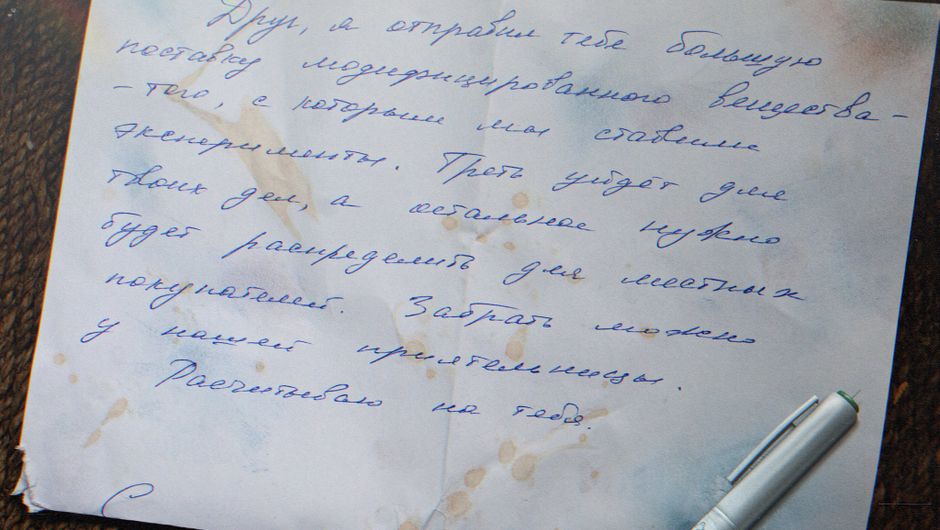 Друг, я отправил тебе большую
поставку модифицированного вещества -
- того, с которым мы ставили
эксперименты. Треть уйдёт для
твоих дел, а остальное нужно
будет распределить для местных
покупателей. Забрать можно
у нашей приятельницы.
Расчитываю на тебя.
С